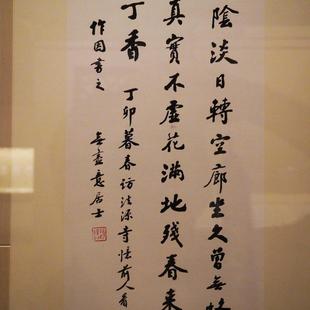 陰淡日轉空廊坐久曾無
真實不虛花滿地殘春来
丁香 丁卯暮春訪法源寺憶前人看
作因書之
無盡意居士